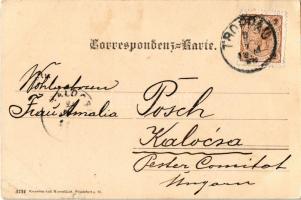 Correspondenz-Karte.
TROPPAU
Wohlgeboren
Frau Amalia
Posch
Kalócsa
Pester Comitat
Ungarn